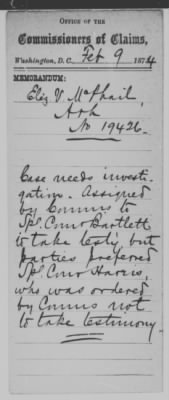 OFFICE OF THE
Commissioners of Claims,
Washington, D. C., Feb 9 1874
MEMORANDUM:
Eliz V. McPhail,
Ark
No 19426.
Case needs investi-
gation. Assigned
by Comrs to
Spl. Comr Bartlett
to take testy, but
parties preferred
Spl. Comr Harris,
who was ordered
by Comrs not
to take testimony.